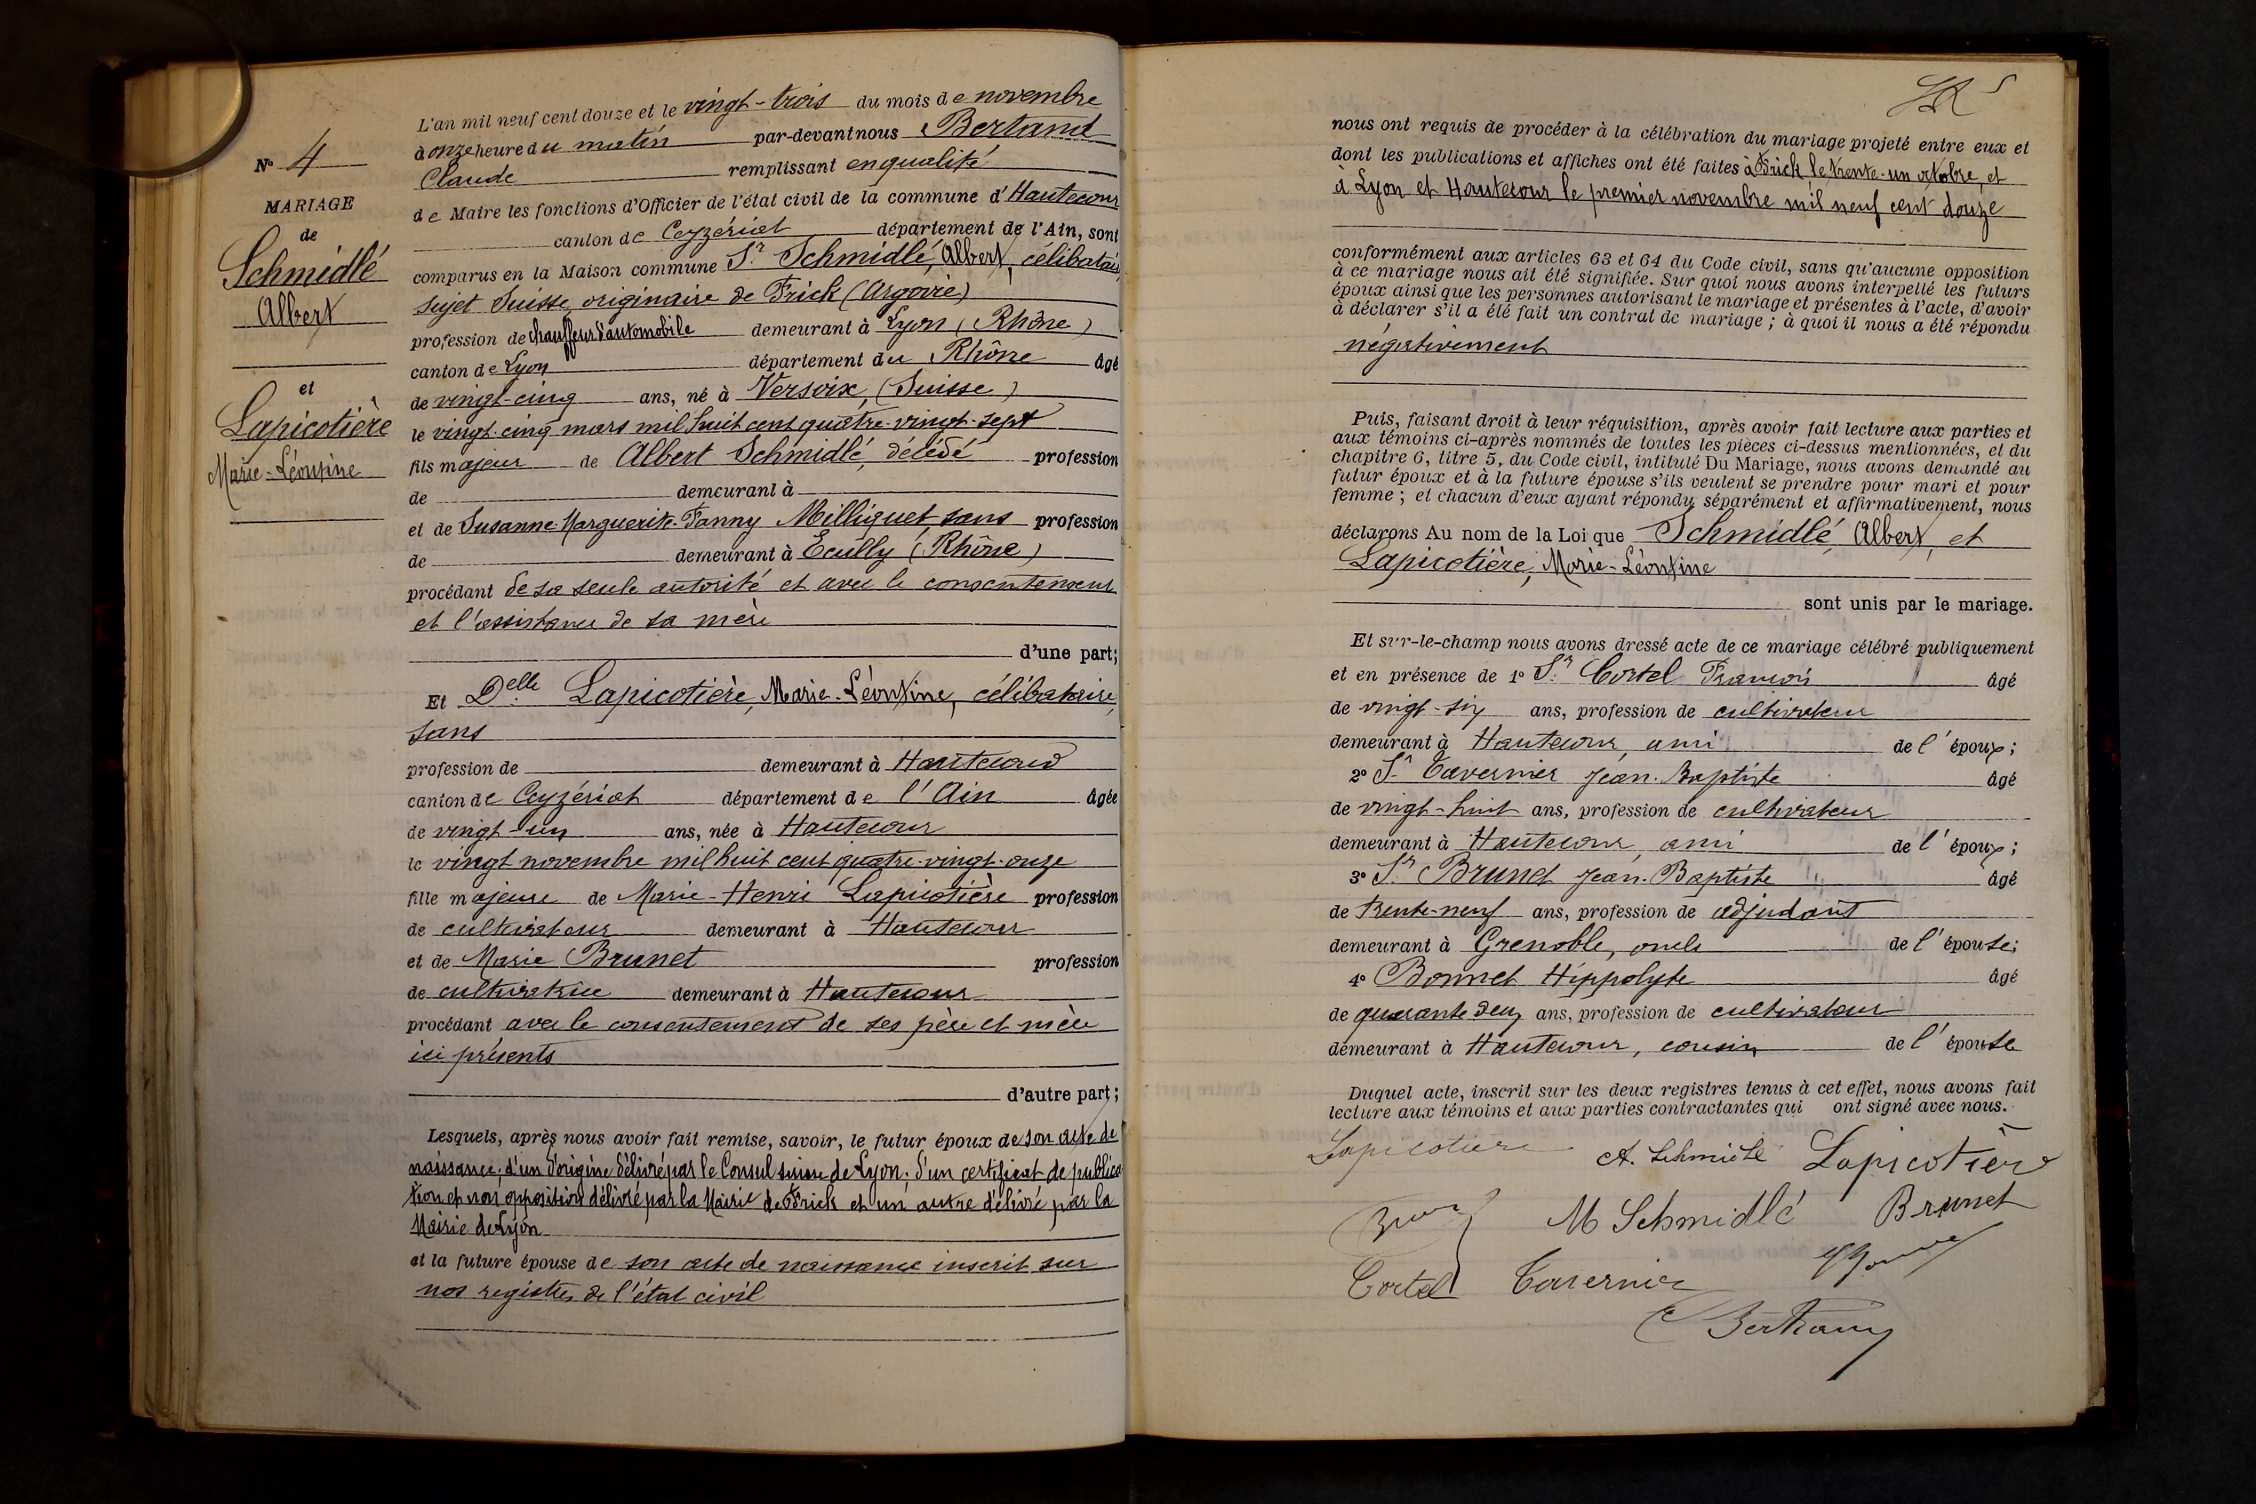 N° 4
MARIAGE
de
Schmidlé
Albert
et
Lapicotière
Marie-Léontine
L'an mil neuf cent douze et le vingt-trois du mois de novembre
à onze heure du matin par-devant nous Bertrand
Claude remplissant en qualité
de Maire les fonctions d'Officier de l'état civil de la commune d'Hautecour
canton de Ceyzériat département de l'Ain, sont
comparus en la Maison commune Sr Schmidlé, Albert, célibataire
sujet Suisse, originaire de Frick (Argovie)
profession de chauffeur d'automobile demeurant à Lyon (Rhône)
canton de Lyon département du Rhône âgé
de vingt-cinq ans, né à Versoix, (Suisse)
le vingt-cinq mars mil huit cent quatre-vingt-sept
fils majeur de Albert Schmidlé, décédé profession
de demeurant à
et de Susanne-Marguerite-Fanny Milliquet, sans profession
de demeurant à Ecully (Rhône)
procédant de sa seule autorité et avec le consentement
et l'assistance de sa mère
d'une part;
Et Delle Lapicotière, Marie-Léontine, célibataire,
sans
profession de demeurant à Hautecour
canton de Ceyzériat département de l'Ain âgée
de vingt-un ans, née à Hautecour
le vingt novembre mil huit cent quatre-vingt-onze
fille majeure de Marie-Henri Lapicotière profession
de cultivateur demeurant à Hautecour
et de Marie Brunet profession
de cultivatrice demeurant à Hautecour
procédant avec le consentement de ses père et mère
ici présents
d'autre part;
Lesquels, après nous avoir fait remise, savoir, le futur époux de son acte de
naissance; d'un d'origine délivré par le Consul suisse de Lyon; d'un certificat de publica
tion et non opposition délivré par la Mairie de Frick et un autre délivré par la
Mairie de Lyon
et la future épouse de son acte de naissance inscrit sur
nos registres de l'état civil
nous ont requis de procéder à la célébration du mariage projeté entre eux et
dont les publications et affiches ont été faites à Frick le trente-un octobre, et
à Lyon et Hautecour le premier novembre mil neuf cent douze
conformément aux articles 63 et 64 du Code civil, sans qu'aucune opposition
à ce mariage nous ait été signifiée. Sur quoi nous avons interpellé les futurs
époux ainsi que les personnes autorisant le mariage et présentes à l'acte, d'avoir
à déclarer s'il a été fait un contrat de mariage; à quoi il nous a été répondu
négativement
Puis, faisant droit à leur réquisition, après avoir fait lecture aux parties et
aux témoins ci-après nommés de toutes les pièces ci-dessus mentionnées, et du
chapitre 6, titre 5, du Code civil, intitulé Du Mariage, nous avons demandé au
futur époux et à la future épouse s'ils veulent se prendre pour mari et pour
femme; et chacun d'eux ayant répondu séparément et affirmativement, nous
déclarons Au nom de la Loi que Schmidlé, Albert, et
Lapicotière, Marie-Léontine
sont unis par le mariage.
Et sur-le-champ nous avons dressé acte de ce mariage célébré publiquement
et en présence de 1° Sr Cortel François âgé
de vingt-six ans, profession de cultivateur
demeurant à Hautecour, ami de l'époux;
2° Sr Tavernier Jean-Baptiste âgé
de vingt-huit ans, profession de cultivateur
demeurant à Hautecour, ami de l'époux;
3° Sr Brunet Jean-Baptiste âgé
de trente-neuf ans, profession de adjudant
demeurant à Grenoble, oncle de l'épouse;
4° Bonnet Hippolyte âgé
de quarante deux ans, profession de cultivateur
demeurant à Hautecour, cousin de l'épouse
Duquel acte, inscrit sur les deux registres tenus à cet effet, nous avons fait
lecture aux témoins et aux parties contractantes qui ont signé avec nous.
Lapicotiere A. Schmidlé Lapicotière
M Schmidlé Brunet
Cortel Tavernier
C Bertrand